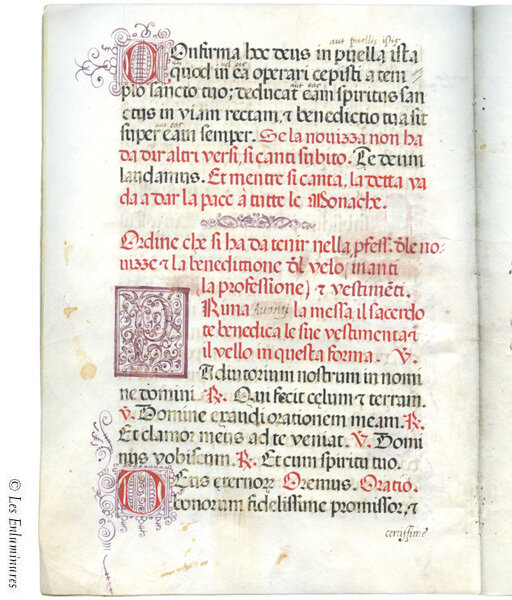 aut puellis istis
Confirma hoc deus in puella ista
vel eis
quod in ea operari cepisti a tem
aut eas
plo sancto tuo; educat eam spiritus san
ctus in viam rectam, & benedictio tua sit
aut eas
super eam semper. Se la novizza non ha
da dir altri versi, si canti subito. Te deum
laudamus. Et mentre si canta, la detta va
da a dar la pace à tutte le Monache.
Ordine che si ha da tenir nella profess. dle no-
vizze & la benedittione dl velo (inanti
la professione) & vestimeti.
PRima Avanti la messa il sacerdo
te benedica le sue vestimenta &
il vello in questa forma. V.
Adiutorium nostrum in nomi
ne domini. R. Qui fecit celum & terram.
V. Domine exaudi orationem meam. R.
Et clamor meus ad te veniat. V. Domi
nus vobiscum. R. Et cum spiritu tuo.
Oremus. Oratio.
DEus eternorum
bonorum fidelissime promissor, &
certissime
© Les Enluminures